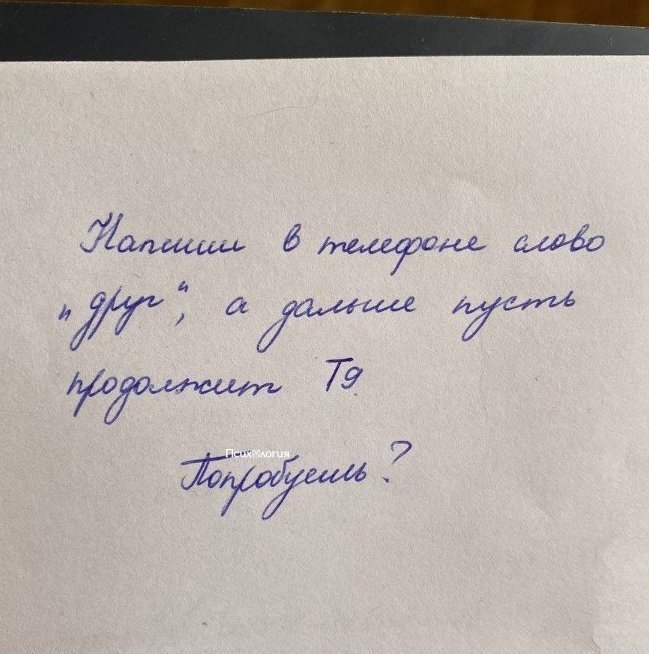 Напиши в телефоне слово
„друг“, а дальше пусть
продолжит Т9
Псих♡логия
Попробуешь?